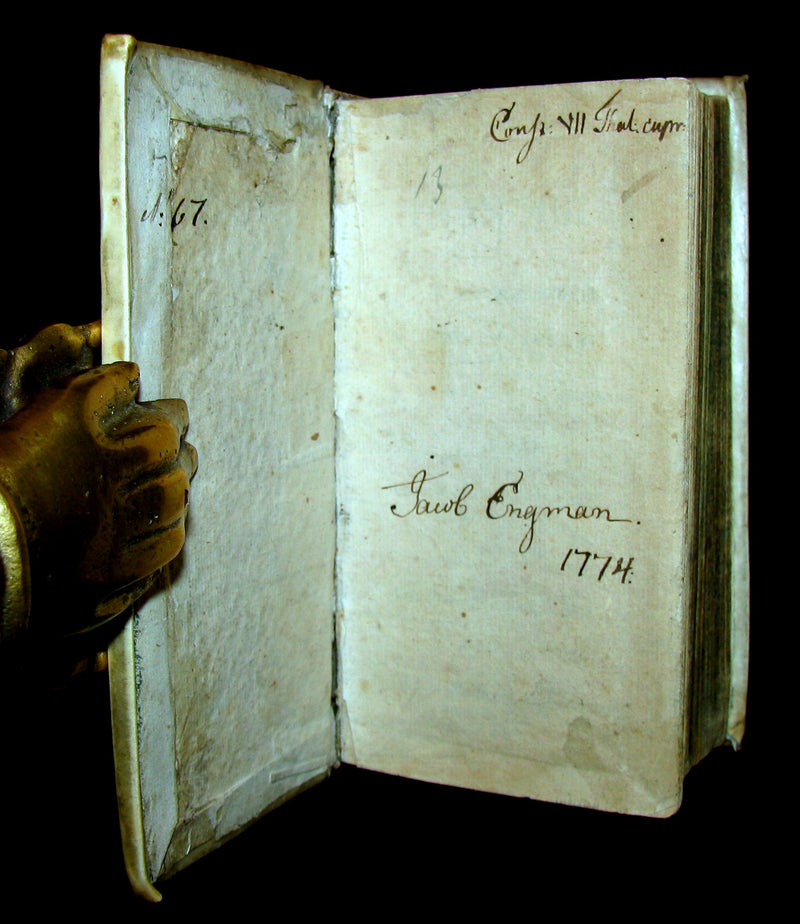 N: 67.
Const: VII Thal. cupr:
13
Jacob Engman.
1774.